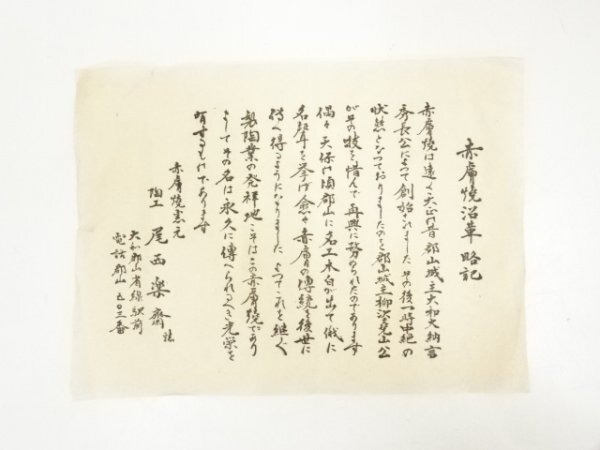 赤膚焼沿革略記
赤膚焼は遠く天正の昔郡山城主大和大納言
秀長公によつて創始されました その後一時中絶の
状態となつておりましたのを郡山城主柳沢堯山公
がその技を惜んで再興に努められたのであります
偶々天保の頃郡山に名工木白が出て俄に
名聲を挙げ愈々赤膚の傳統を後世に
傳へ得るようになりました よつてこれを継ぐ
製陶業の発祥地こそはこの赤膚焼であり
そしてその名は永久に傳へられるべき光栄を
有するものであります
赤膚焼窯元
陶工 尾西楽斎
大和郡山省線駅前
電話郡山 五〇三番